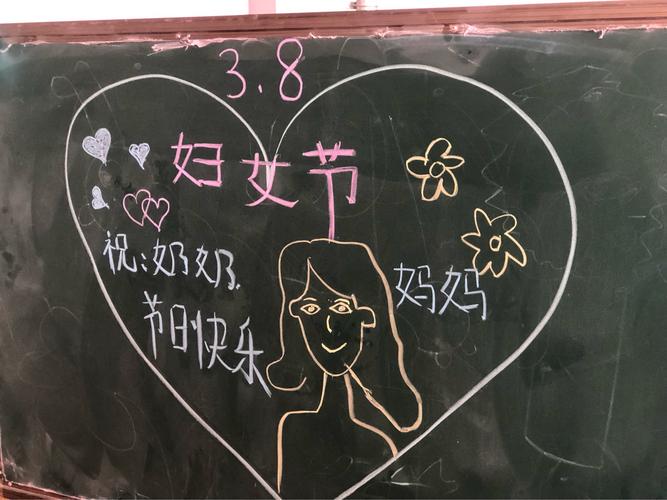 3.8
妇女节
祝:奶奶.妈妈
节日快乐